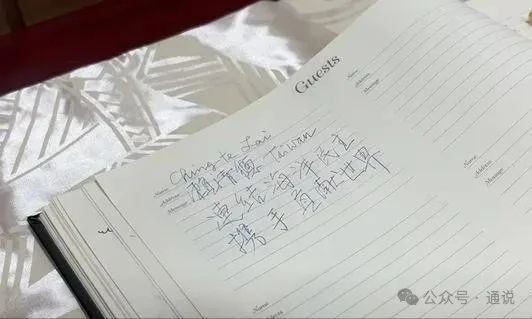 Guests
Name
Ching-te Lai
Address
賴清德 Taiwan
Message
連結海洋民主
携手貢献世界
Name
Address
Name
Address
Message
Name
Address
Message
公众号·通说